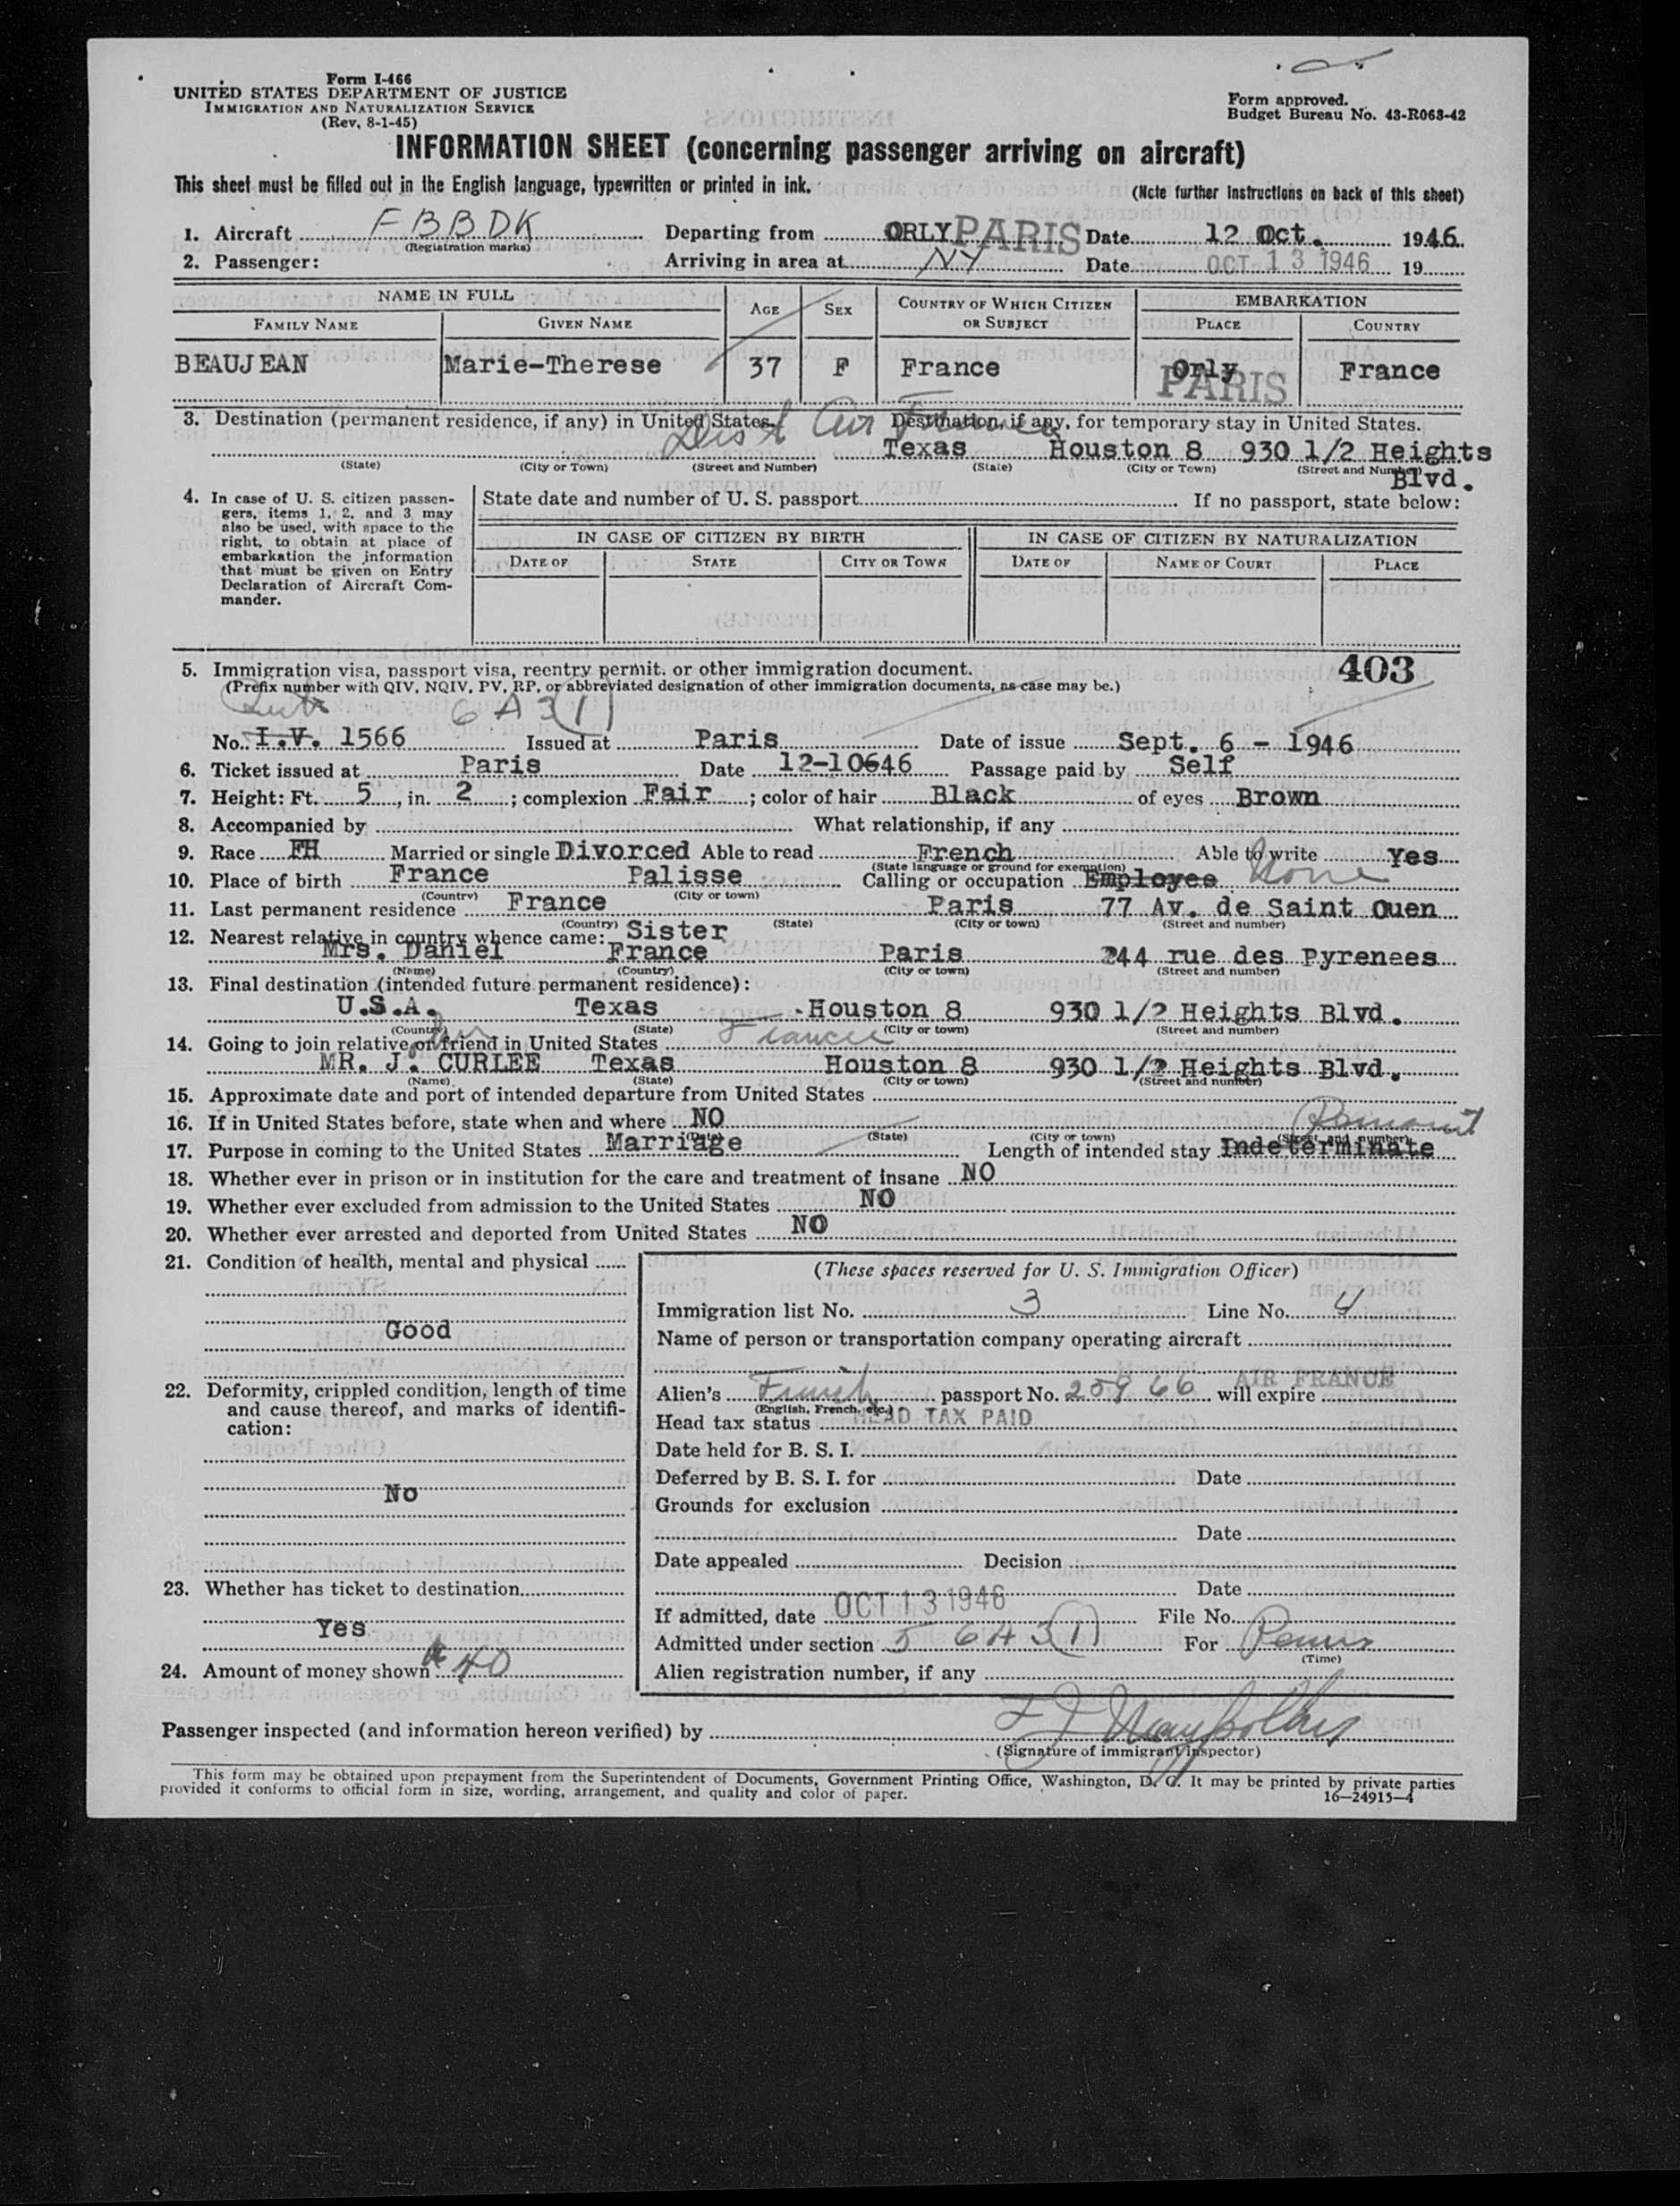 Form I-466
UNITED STATES DEPARTMENT OF JUSTICE
IMMIGRATION AND NATURALIZATION SERVICE
(Rev. 8-1-45)
Form approved.
Budget Bureau No. 43-R063-42
INFORMATION SHEET (concerning passenger arriving on aircraft)
This sheet must be filled out in the English language, typewritten or printed in ink.
(Note further instructions on back of this sheet)
1. Aircraft FBBDK Departing from ORLY PARIS Date 12 Oct. 1946
(Registration marks)
2. Passenger: Arriving in area at NY Date OCT 13 1946 19
NAME IN FULL AGE SEX COUNTRY OF WHICH CITIZEN OR SUBJECT EMBARKATION
FAMILY NAME GIVEN NAME PLACE COUNTRY
BEAUJEAN Marie-Therese 37 F France Orly PARIS France
3. Destination (permanent residence, if any) in United States. Destination, if any, for temporary stay in United States.
Dest Air France
Texas Houston 8 930 1/2 Heights
(State) (City or Town) (Street and Number) (State) (City or Town) (Street and Number)
Blvd.
4. In case of U. S. citizen passengers, items 1, 2, and 3 may also be used, with space to the right, to obtain at place of embarkation the information that must be given on Entry Declaration of Aircraft Commander.
State date and number of U. S. passport If no passport, state below:
IN CASE OF CITIZEN BY BIRTH IN CASE OF CITIZEN BY NATURALIZATION
DATE OF STATE CITY OR TOWN DATE OF NAME OF COURT PLACE
5. Immigration visa, passport visa, reentry permit, or other immigration document. 403
(Prefix number with QIV, NQIV, PV, RP, or abbreviated designation of other immigration documents, as case may be.)
6 A 3(1)
No. I.V. 1566 Issued at Paris Date of issue Sept. 6 - 1946
6. Ticket issued at Paris Date 12-10646 Passage paid by Self
7. Height: Ft. 5, in. 2; complexion Fair; color of hair Black of eyes Brown
8. Accompanied by What relationship, if any
9. Race FH Married or single Divorced Able to read French Able to write Yes
(State language or ground for exemption)
10. Place of birth France Palisse Calling or occupation Employee None
(Country) (City or town)
11. Last permanent residence France Paris 77 Av. de Saint Ouen
(Country) (State) (City or town) (Street and number)
12. Nearest relative in country whence came: Sister
Mrs. Daniel France Paris 244 rue des Pyrenees
(Name) (Country) (City or town) (Street and number)
13. Final destination (intended future permanent residence):
U.S.A. Texas Houston 8 930 1/2 Heights Blvd.
(Country) (State) (City or town) (Street and number)
14. Going to join relative or friend in United States Fiancee
MR. J. CURLEE Texas Houston 8 930 1/2 Heights Blvd.
(Name) (State) (City or town) (Street and number)
15. Approximate date and port of intended departure from United States
16. If in United States before, state when and where NO
(Date) (State) (City or town) (Street and number)
17. Purpose in coming to the United States Marriage Length of intended stay Indeterminate
18. Whether ever in prison or in institution for the care and treatment of insane NO
19. Whether ever excluded from admission to the United States NO
20. Whether ever arrested and deported from United States NO
21. Condition of health, mental and physical
Good
22. Deformity, crippled condition, length of time and cause thereof, and marks of identification:
No
23. Whether has ticket to destination
Yes
24. Amount of money shown 40
(These spaces reserved for U. S. Immigration Officer)
Immigration list No. 3 Line No. 4
Name of person or transportation company operating aircraft
AIR FRANCE
Alien's French passport No. 25966 will expire
(English, French, etc.)
Head tax status HEAD TAX PAID
Date held for B. S. I.
Deferred by B. S. I. for Date
Grounds for exclusion
Date
Date appealed Decision
Date
If admitted, date OCT 13 1946 File No.
Admitted under section 5 6A 3(1) For
(Time)
Alien registration number, if any
Passenger inspected (and information hereon verified) by
(Signature of immigrant inspector)
This form may be obtained upon prepayment from the Superintendent of Documents, Government Printing Office, Washington, D. C. It may be printed by private parties
provided it conforms to official form in size, wording, arrangement, and quality and color of paper.
16—24915-4